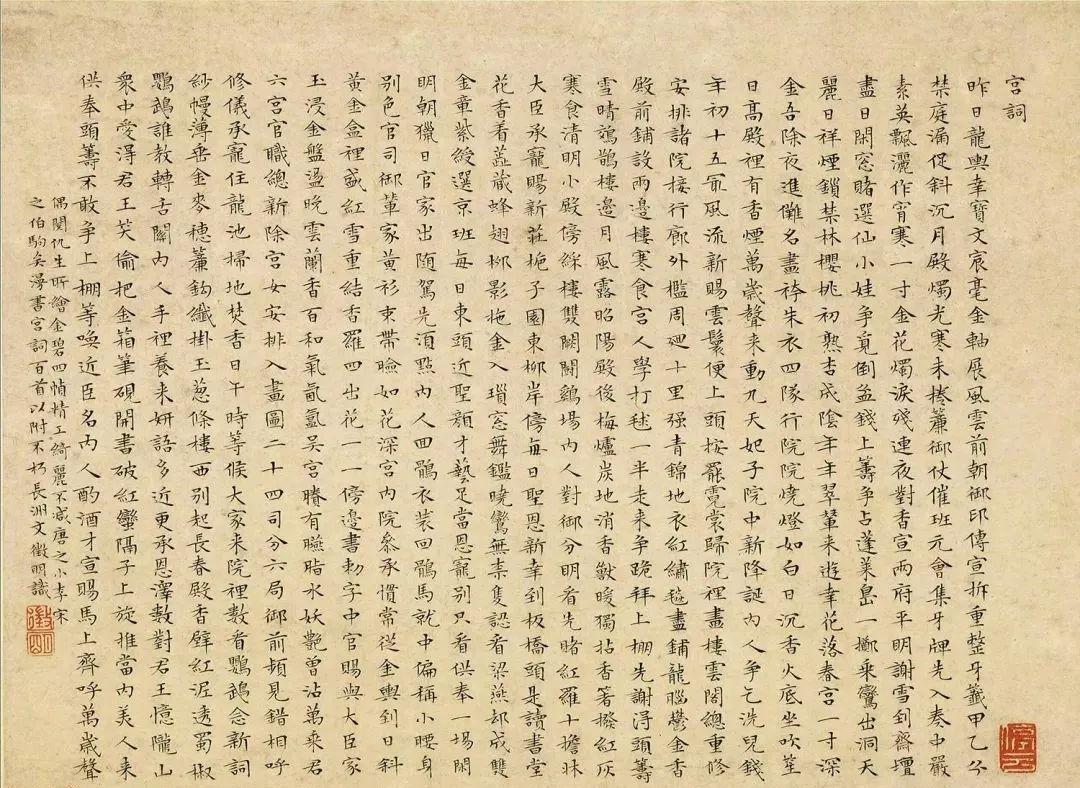 宮詞
昨日龍輿幸寶文宸毫金軸展風雲前朝御印傳宣拆重整牙籤甲乙分
禁庭漏促斜沉月殿燭光寒未捲簾御仗催班元會集牙牌先入奏中嚴
素英飄灑作宵寒一寸金花燭淚殘連夜對香宣兩府平明謝雪到齋壇
盡日閑窓賭選仙小娃争覓倒盆錢上籌争占蓬萊島一擲乘鸞出洞天
麗日祥煙鎖禁林櫻桃初熟杏成陰年年翠輦来遊幸花落春宮一寸深
金吾除夜進儺名畫袴朱衣四隊行院院燒燈如白日沉香火底坐吹笙
日高殿裡有香煙萬歲聲来動九天妃子院中新降誕內人争乞洗兒錢
年初十五最風流新賜雲鬟便上頭按罷霓裳歸院裡畫樓雲閣總重修
安排諸院接行廊外檻周廻十里强青錦地衣紅繡毯盡鋪龍腦鬱金香
殿前鋪設兩邊樓寒食宮人學打毬一半走来争跪拜上棚先謝得頭籌
雪晴鳷鵲樓邊月風露昭陽殿後梅爐炭地消香獸暖獨拈香箸撥紅灰
寒食清明小殿傍綵樓雙闕鬬鷄場內人對御分明看先賭紅羅十擔牀
大臣承寵賜新莊梔子園東柳岸傍每日聖恩新幸到板橋頭是讀書堂
花香着蕋藏蜂翅柳影拖金入瑣窓舞鑑曉鸞無柰隻認看梁燕却成雙
金章紫綬選京班每日東頭近聖顏才藝足當恩寵別只看供奉一場閑
明朝獵日官家出随駕先湏點內人回鶻衣装回鶻馬就中偏稱小腰身
別色官司御輦家黄衫束帶臉如花深宮內院叅承慣常從金輿到日斜
黄金盒裡盛紅雪重結香羅四出花一一傍邊書勑字中官賜與大臣家
玉浸金盤盪晚雲蘭香百和氣氤氲吳宮賸有嚥脂水妖艷曾沾萬乘君
六宮官職總新除宮女安排入畫圖二十四司分六局御前頻見錯相呼
修儀承寵住龍池掃地焚香日午時等候大家来院裡教看鸚鵡念新詞
紗幔薄垂金麥穗簾鈎纖掛玉葱條樓西別起長春殿香壁紅泥透蜀椒
鸚鵡誰教轉舌關內人手裡養来姸語多近更承恩澤數對君王憶隴山
衆中愛得君王笑偷把金箱筆硯開書破紅蠻隔子上旋推當內美人来
供奉頭籌不敢争上棚等喚近臣名內人酌酒才宣賜馬上齊呼萬歲聲
偶閲仇生所繪金碧四幀精工綺麗不減唐之小李宋
之伯駒矣漫書宮詞百首以附不朽長洲文徵明識
徵明
停雲